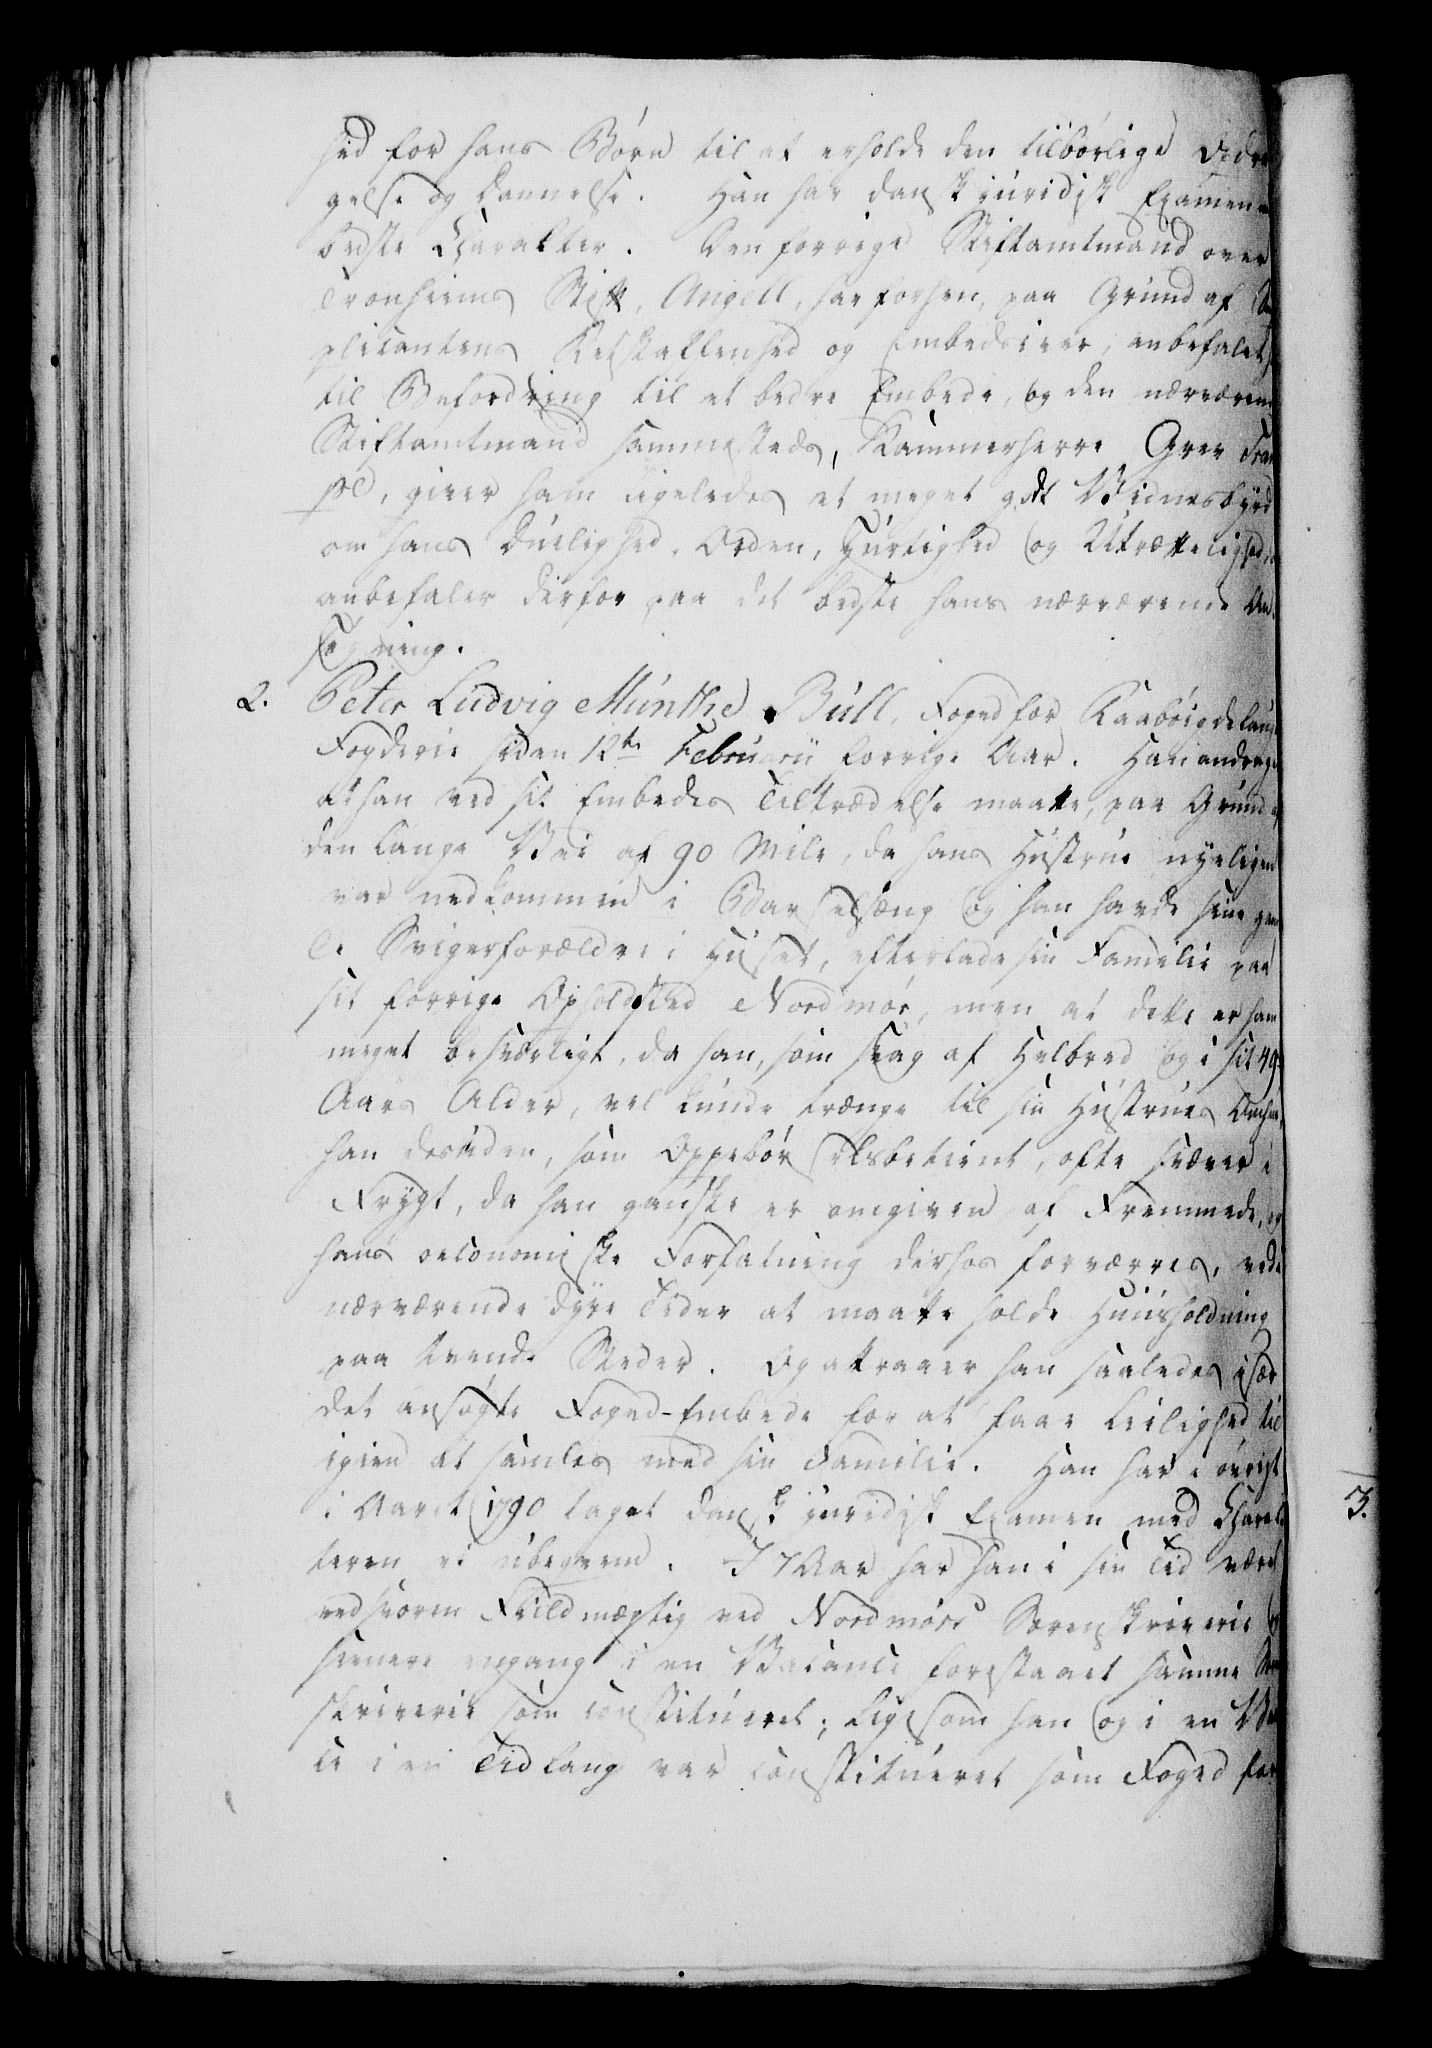 hed for hans Børn til at erholde den tilbørlige Oedra
gelse og Dannelse. Han har dansk juridisk Examen
bedste Charakter. Den forrige Stiftamtmand over
Tronhiems Stift, Angell, har forhen, paa Grund af Su
plicantens Retskaffenhed og Embedsiver, anbefalet
til Befordring til et bedre Embede, og den nærværen
Stiftamtmand sammesteds, Kammerherre Grev Tram
pe, giver ham ligeledes et meget godt Vidnesbyrd
om hans Duelighed, Orden, Hurtighed og Utrættelighed,
anbefaler derfor paa det bedste hans nærværende An
søgning.
2. Peter Ludvig Munthe Bull, Foged for Raabøigdelaugs
Fogderie siden 12te Februarii forrige Aar. Han andrager
at han ved sit Embedes Tiltrædelse maatte, paa Grund af
den lange Vei af 90 Mile, da hans Hustrue nyeligen
var nedkommen i Barselseng og han havde sine gam
le Svigerforældre i Huset, efterlade sin Familie paa
sit forrige Opholdsted Nordmør, men at dette er ham
meget besværligt, da han, som svag af Helbred og i sit 49
Aars Alder, vel kunde trænge til sin Hustrues
han desuden, som Oppebørselsbetient, ofte svæver i
Frygt, da han ganske er omgiven af Fremmede, og
hans oeconomiske Forfatning derhos forværres, ved i
nærværende dyre Tider at maatte holde Huusholdning
paa tvende Steder. Og attraaer han saaledes især
det ansøgte Foged-Embede for at faae Leilighed til
igien at samles med sin Familie. Han har i øvrigt
i Aaret 1790 taget dansk juridisk Examen med Charak
teren ei ubeqvem. I 7 Aar har han i sin Tid været
edsvoren Fuldmægtig ved Nordmørs Sorenskriverie og
sienere engang i en Vacance forestaaet samme Soren
skriverie som constitueret; ligesom han og i en Vacan
ce i en Tidlang var constitueret som Foged for
3.